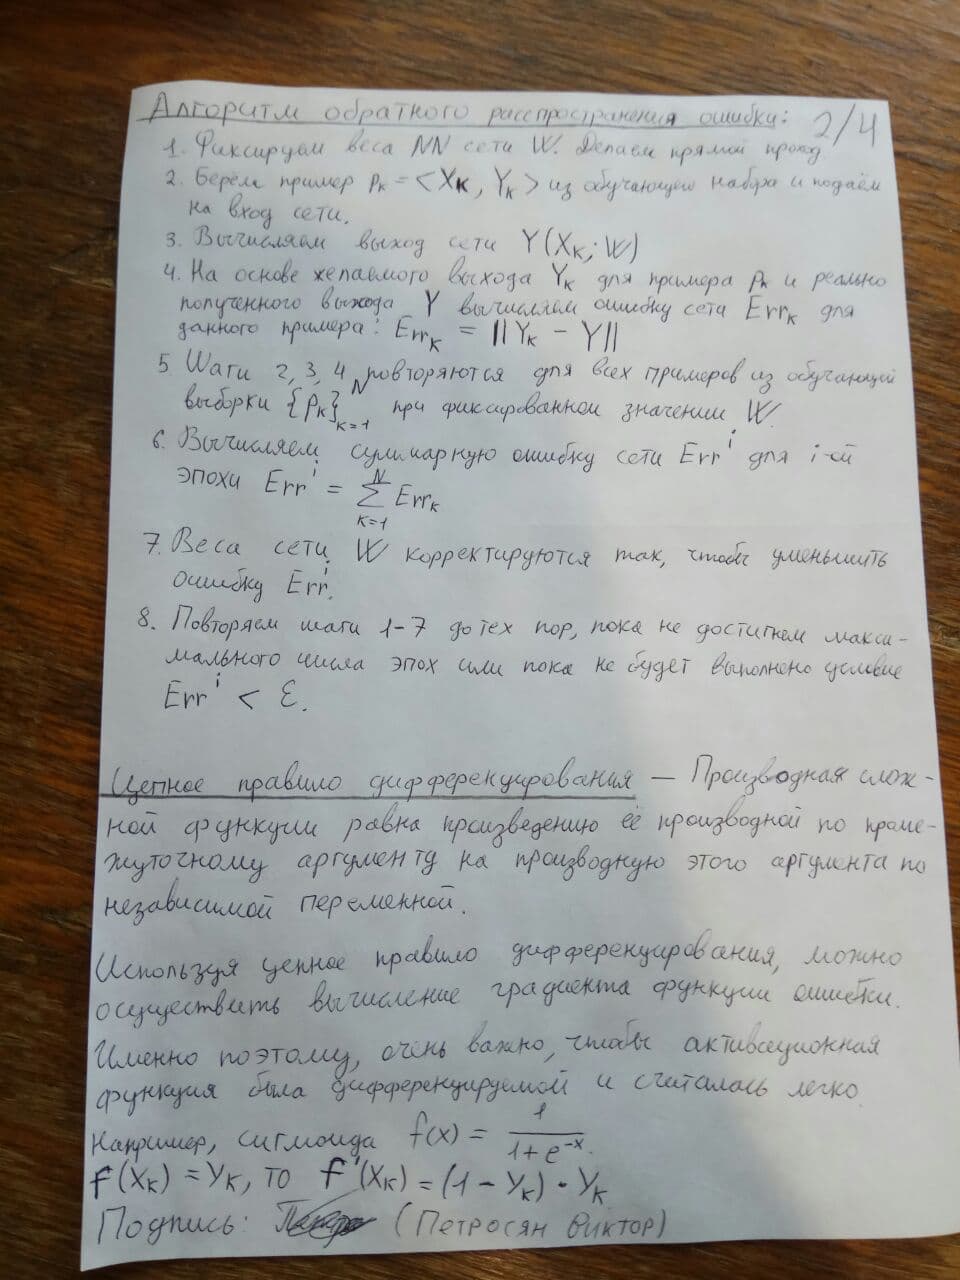 Алгоритм обратного расспространения ошибки: 2/4
1. Фиксируем веса NN сети W. Делаем прямой проход
2. Берём пример pₖ = <Xₖ, Yₖ> из обучающего набора и подаём
на вход сети.
3. Вычисляем выход сети Y(Xₖ; W)
4. На основе желаемого выхода Yₖ для примера pₖ и реально
полученного выхода Y вычисляем ошибку сети Errₖ для
данного примера: Errₖ = ||Yₖ - Y||
5. Шаги 2, 3, 4 повторяются для всех примеров из обучающей
выборки {pₖ}ᴺₖ₌₁ при фиксированном значении W.
6. Вычисляем суммарную ошибку сети Errⁱ для i-ой
эпохи Errⁱ = ∑ᴺₖ₌₁ Errₖ
7. Веса сети W корректируются так, чтобы уменьшить
ошибку Errⁱ.
8. Повторяем шаги 1-7 до тех пор, пока не достигнем макси-
мального числа эпох или пока не будет выполнено условие
Errⁱ < Ɛ.
Цепное правило дифференцирования — Производная слож-
ной функции равна произведению её производной по проме-
жуточному аргументу на производную этого аргумента по
независимой переменной.
Используя цепное правило дифференцирования, можно
осуществить вычисление градиента функции ошибки.
Именно поэтому, очень важно, чтобы активационная
функция была дифференцируемой и считалась легко.
Например, сигмоида f(x) = 1/(1+e⁻ˣ).
f(Xₖ) = Yₖ, то f'(Xₖ) = (1 - Yₖ) · Yₖ
Подпись: (Петросян Виктор)